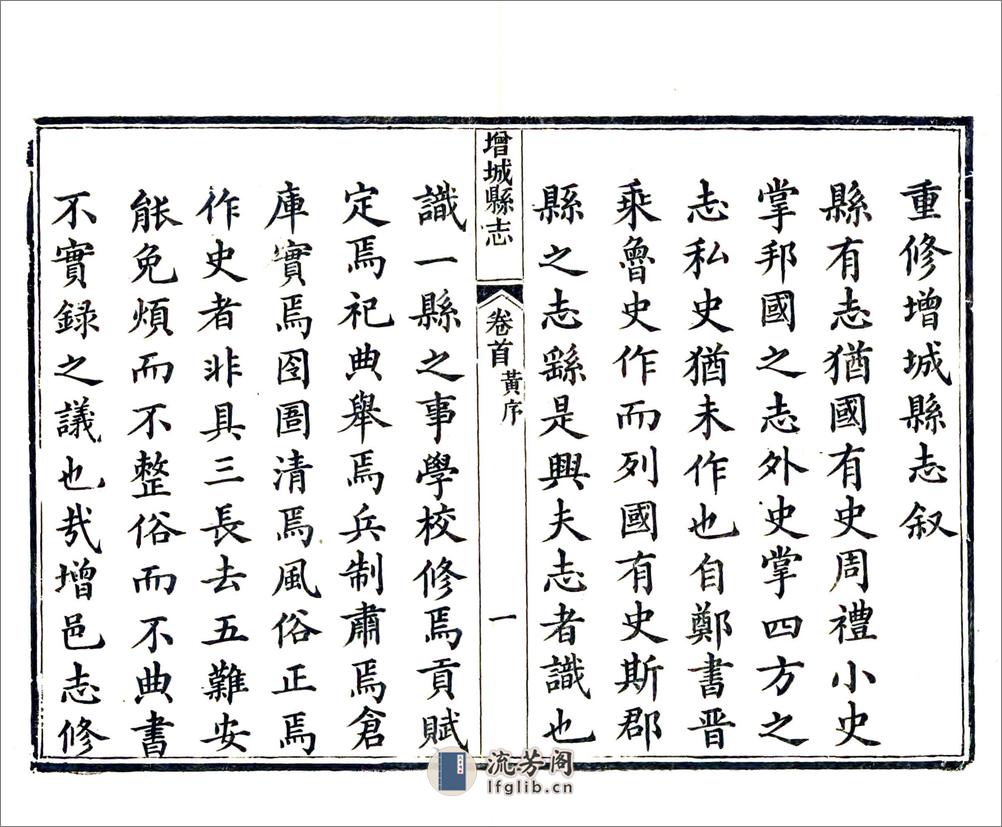 重修增城縣志叙
縣有志猶國有史周禮小史
掌邦國之志外史掌四方之
志私史猶未作也自鄭書晋
乘魯史作而列國有史斯郡
縣之志繇是興夫志者識也
增城縣志
卷首
黃序
一
識一縣之事學校修焉貢賦
定焉祀典舉焉兵制肅焉倉
庫實焉囹圄清焉風俗正焉
作史者非具三長去五難安
能免煩而不整俗而不典書
不實録之議也㢤增邑志修
流芳阁
lfglib.cn